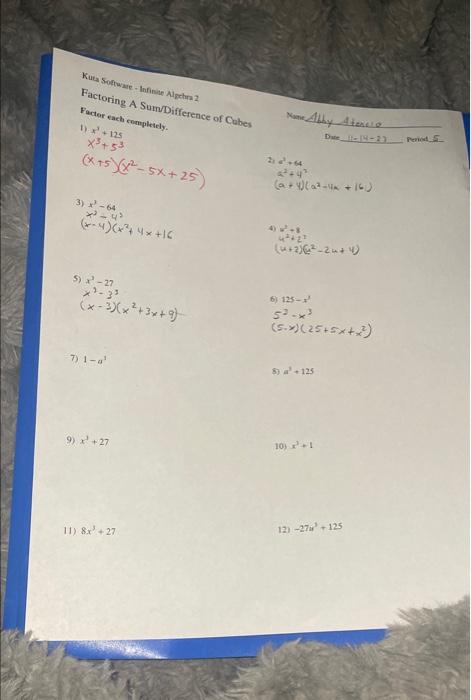 Kuta Software - Infinite Algebra 2
Name Abby Atencio
Factoring A Sum/Difference of Cubes
Date 11-14-23 Period 5
Factor each completely.
1) x³ + 125
x³ + 5³
(x+5)(x² - 5x + 25)
2) a³ + 64
a³ + 4³
(a + 4)(a² - 4a + 16)
3) x³ - 64
x³ - 4³
(x - 4)(x² + 4x + 16
4) u³ + 8
u³ + 2³
(u + 2)(u² - 2u + 4)
5) x³ - 27
x³ - 3³
(x - 3)(x² + 3x + 9)
6) 125 - x³
5³ - x³
(5-x)(25 + 5x + x²)
7) 1 - a³
8) a³ + 125
9) x³ + 27
10) x³ + 1
11) 8x³ + 27
12) -27u³ + 125